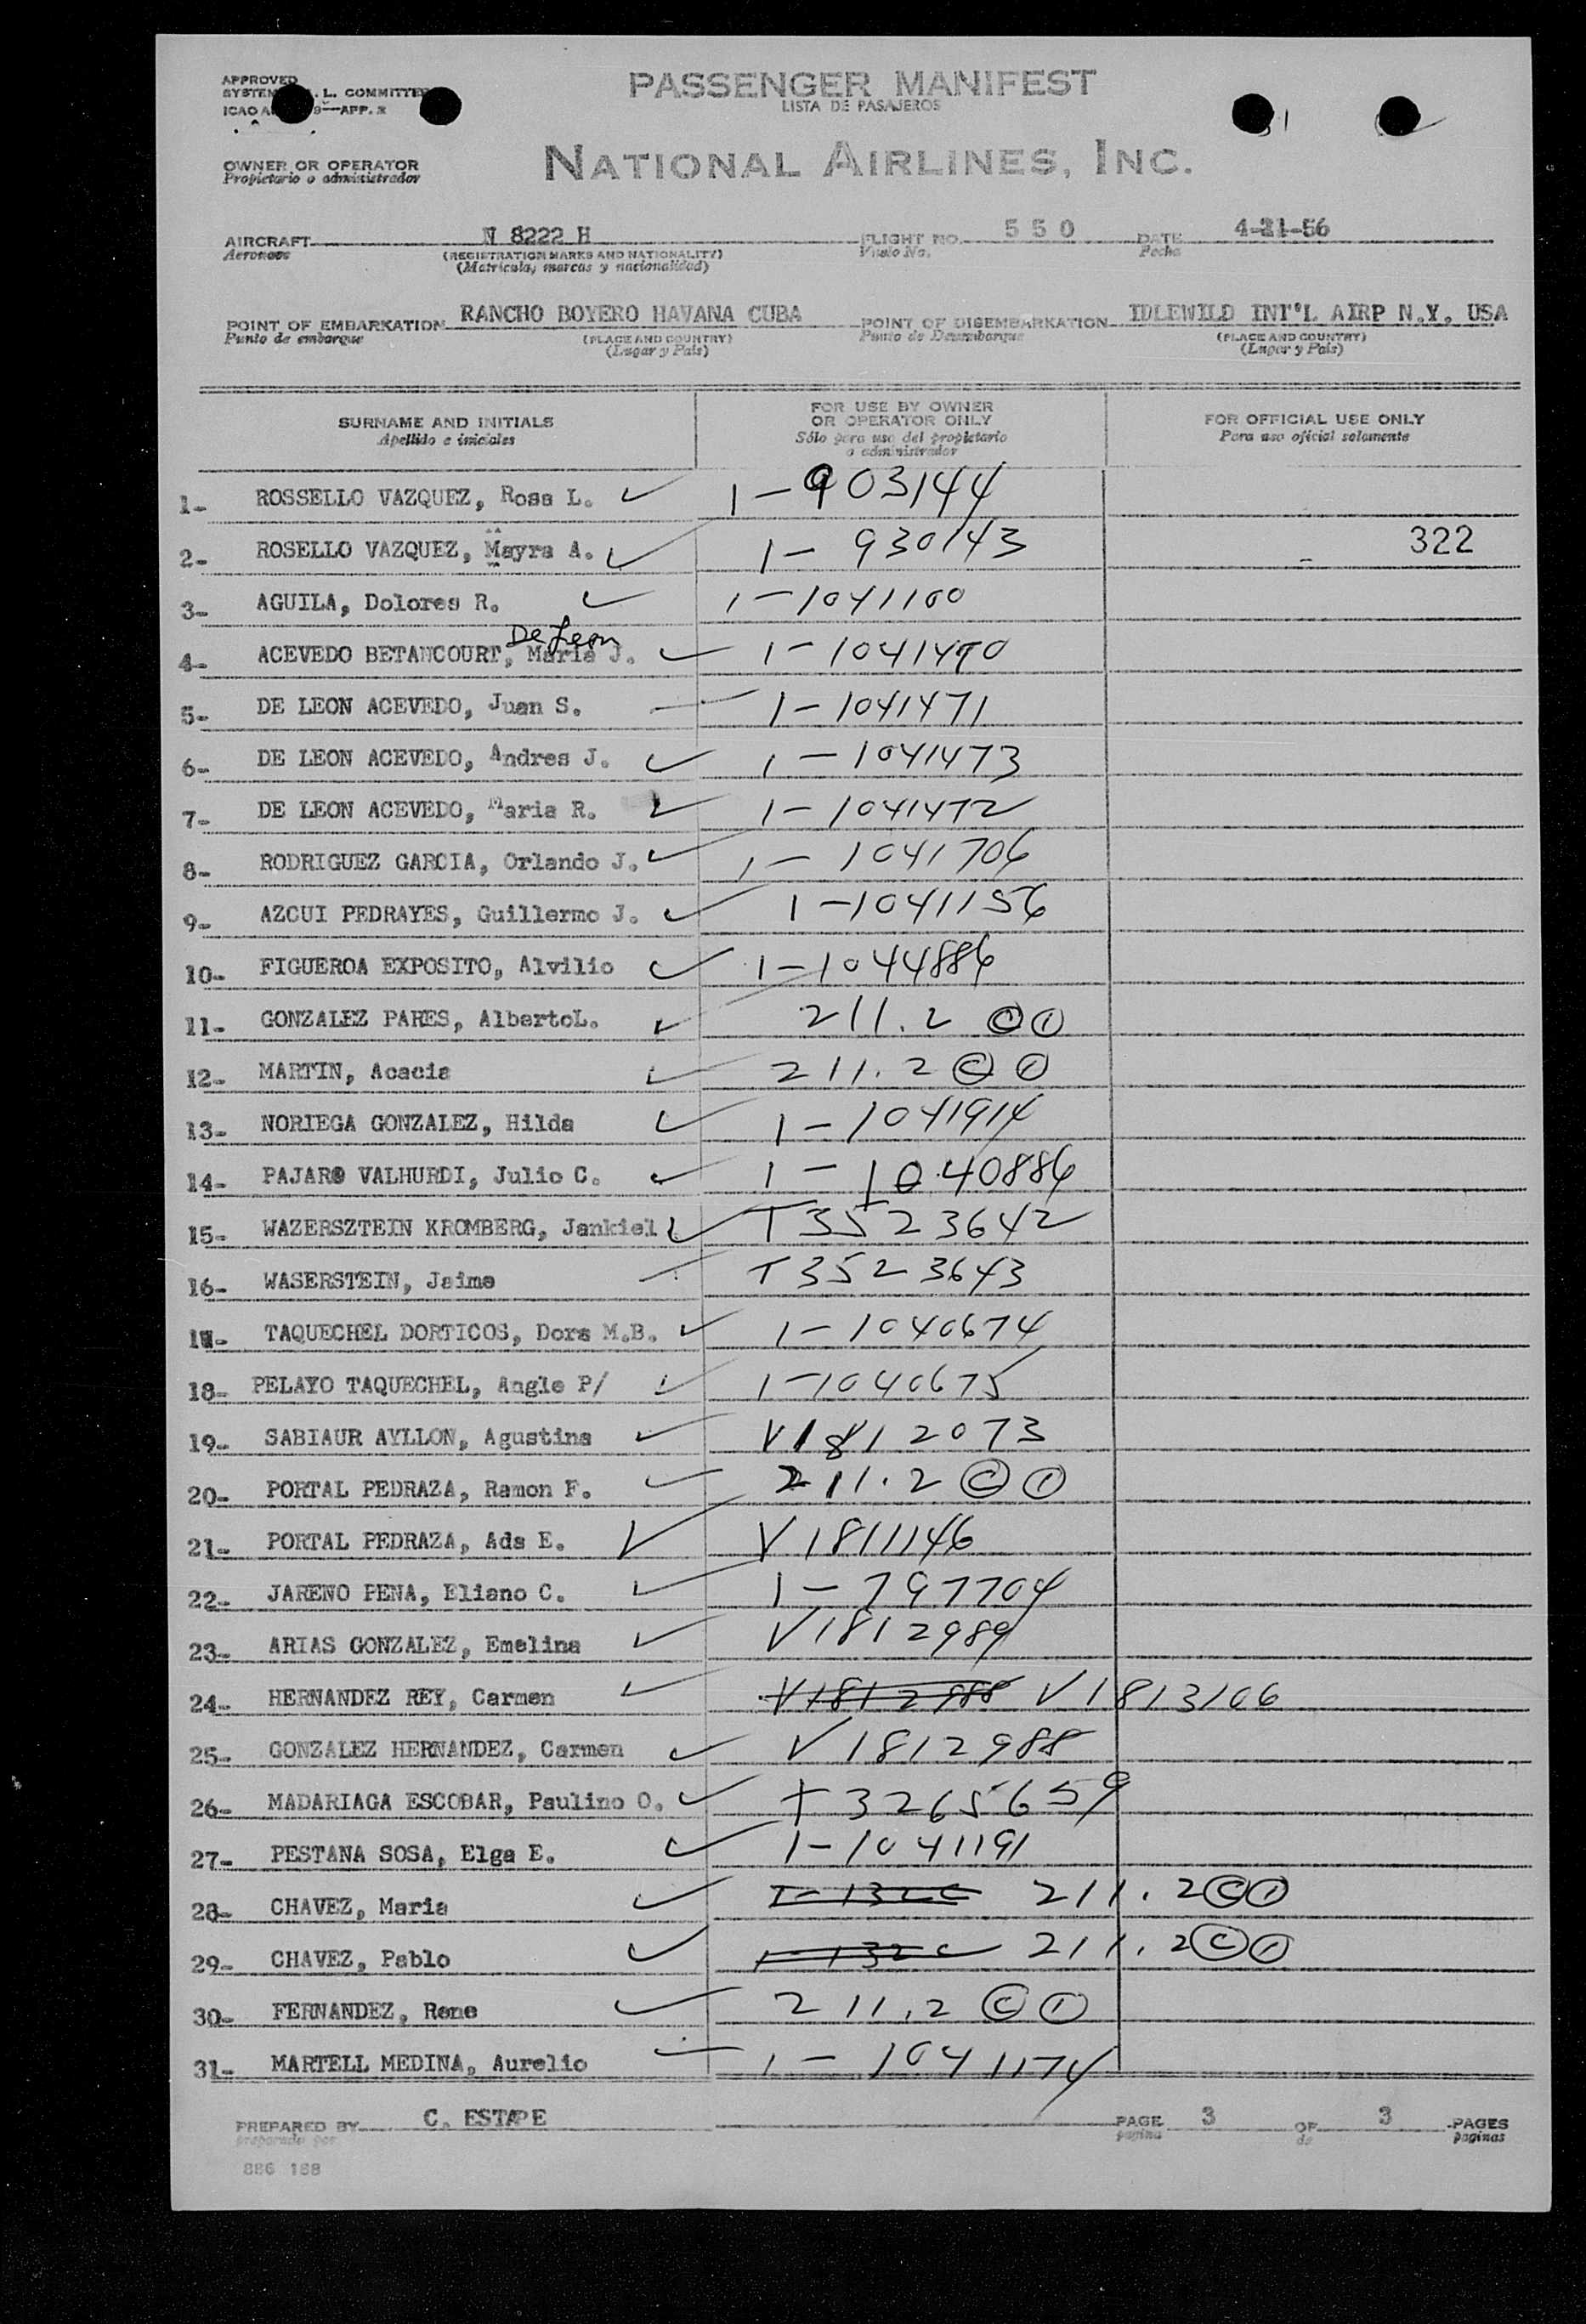 APPROVED
PASSENGER MANIFEST
LISTA DE PASAJEROS
L. COMMITTEE
ICAO 9—APP. 2
OWNER OR OPERATOR
Propietario o administrador
NATIONAL AIRLINES, INC.
AIRCRAFT N 8222 H FLIGHT NO. 550 DATE 4-21-56
Aeronave (REGISTRATION MARKS AND NATIONALITY) Vuelo No. Fecha
(Matricula, marcas y nacionalidad)
POINT OF EMBARKATION RANCHO BOYERO HAVANA CUBA POINT OF DISEMBARKATION IDLEWILD INT'L AIRP N.Y. USA
Punto de embarque (PLACE AND COUNTRY) Punto de Desembarque (PLACE AND COUNTRY)
(Lugar y Pais) (Lugar y Pais)
SURNAME AND INITIALS FOR USE BY OWNER OR OPERATOR ONLY FOR OFFICIAL USE ONLY
Apellido e iniciales Sólo para uso del propietario o administrador Para uso oficial solamente
1- ROSSELLO VAZQUEZ, Rosa L. ✓ 1-903144
2- ROSELLO VAZQUEZ, Mayra A. ✓ 1-930143 322
3- AGUILA, Dolores R. ✓ 1-1041100
De Leon
4- ACEVEDO BETANCOURT, Maria J. ✓ 1-1041470
5- DE LEON ACEVEDO, Juan S. 1-1041471
6- DE LEON ACEVEDO, Andres J. ✓ 1-1041473
7- DE LEON ACEVEDO, Maria R. ✓ 1-1041472
8- RODRIGUEZ GARCIA, Orlando J. ✓ 1-1041706
9- AZCUI PEDRAYES, Guillermo J. ✓ 1-1041156
10- FIGUEROA EXPOSITO, Alvilio ✓ 1-1044886
11- GONZALEZ PARES, AlbertoL. ✓ 211.2 Ⓒ ①
12- MARTIN, Acacia ✓ 211.2 Ⓒ ①
13- NORIEGA GONZALEZ, Hilda ✓ 1-1041914
14- PAJARO VALHURDI, Julio C. ✓ 1-1040886
15- WAZERSZTEIN KROMBERG, Jankiel ✓ T3523642
16- WASERSTEIN, Jaime T3523643
17- TAQUECHEL DORTICOS, Dora M.B. ✓ 1-1040674
18- PELAYO TAQUECHEL, Angle P/ ✓ 1-1040675
19- SABIAUR AYLLON, Agustina ✓ V1812073
20- PORTAL PEDRAZA, Ramon F. ✓ 211.2 Ⓒ ①
21- PORTAL PEDRAZA, Ada E. ✓ V1811146
22- JARENO PENA, Eliano C. ✓ 1-797704
23- ARIAS GONZALEZ, Emelina ✓ V1812989
24- HERNANDEZ REY, Carmen ✓ V1812988 V1813106
25- GONZALEZ HERNANDEZ, Carmen ✓ V1812988
26- MADARIAGA ESCOBAR, Paulino O. ✓ T3265659
27- PESTANA SOSA, Elga E. ✓ 1-1041191
28- CHAVEZ, Maria ✓ 211.2 Ⓒ ①
29- CHAVEZ, Pablo ✓ 211.2 Ⓒ ①
30- FERNANDEZ, Rene ✓ 211.2 Ⓒ ①
31- MARTELL MEDINA, Aurelio 1-1041174
PREPARED BY C. ESTAPE PAGE 3 OF 3 PAGES
preparado por pagina de paginas
886 188